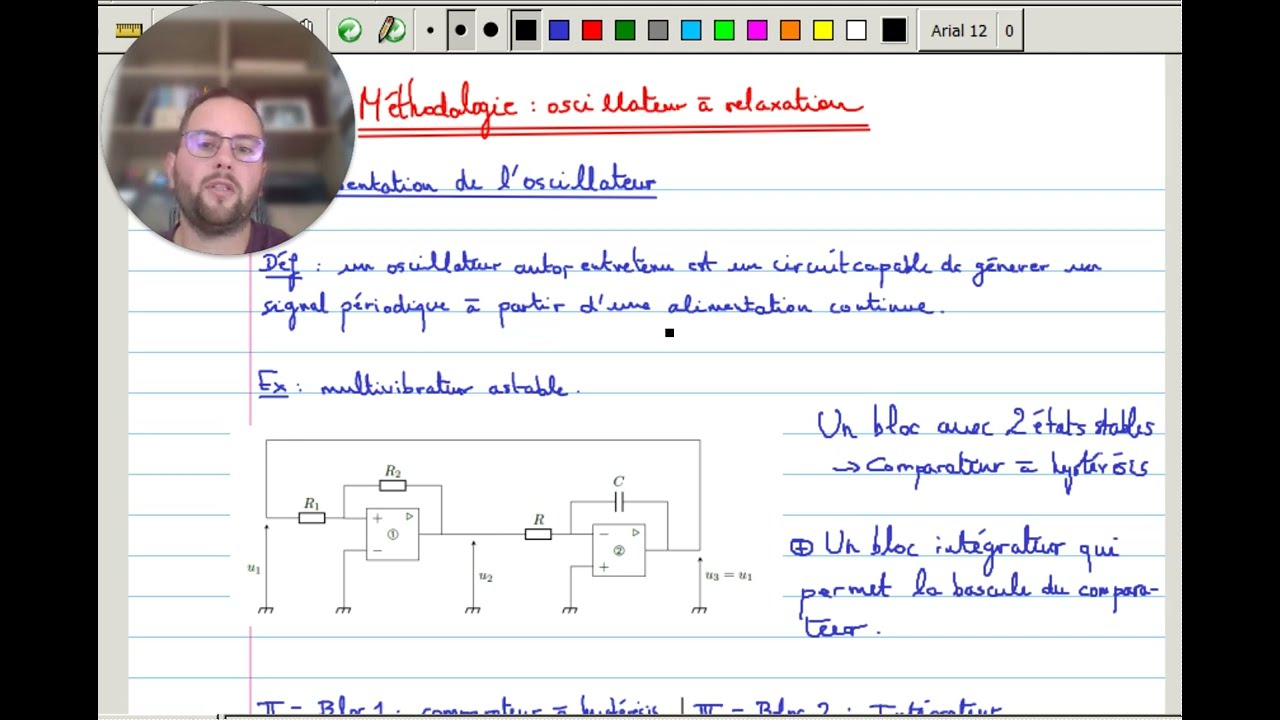 Arial 12 0
Méthodologie : oscillateur à relaxation
entation de l'oscillateur
Déf : un oscillateur auto-entretenu est un circuit capable de génerer un
signal périodique à partir d'une alimentation continue.
Ex : multivibrateur astable.
Un bloc avec 2 états stables
→ Comparateur à hystérésis
⊕ Un bloc intégrateur qui
permet la bascule du compara-
teur.
R1
R2
+
▷
①
−
u1
u2
R
C
−
▷
②
+
u3 = u1
II - Bloc 1 : comparateur à hystérésis | III - Bloc 2 : Intégrateur